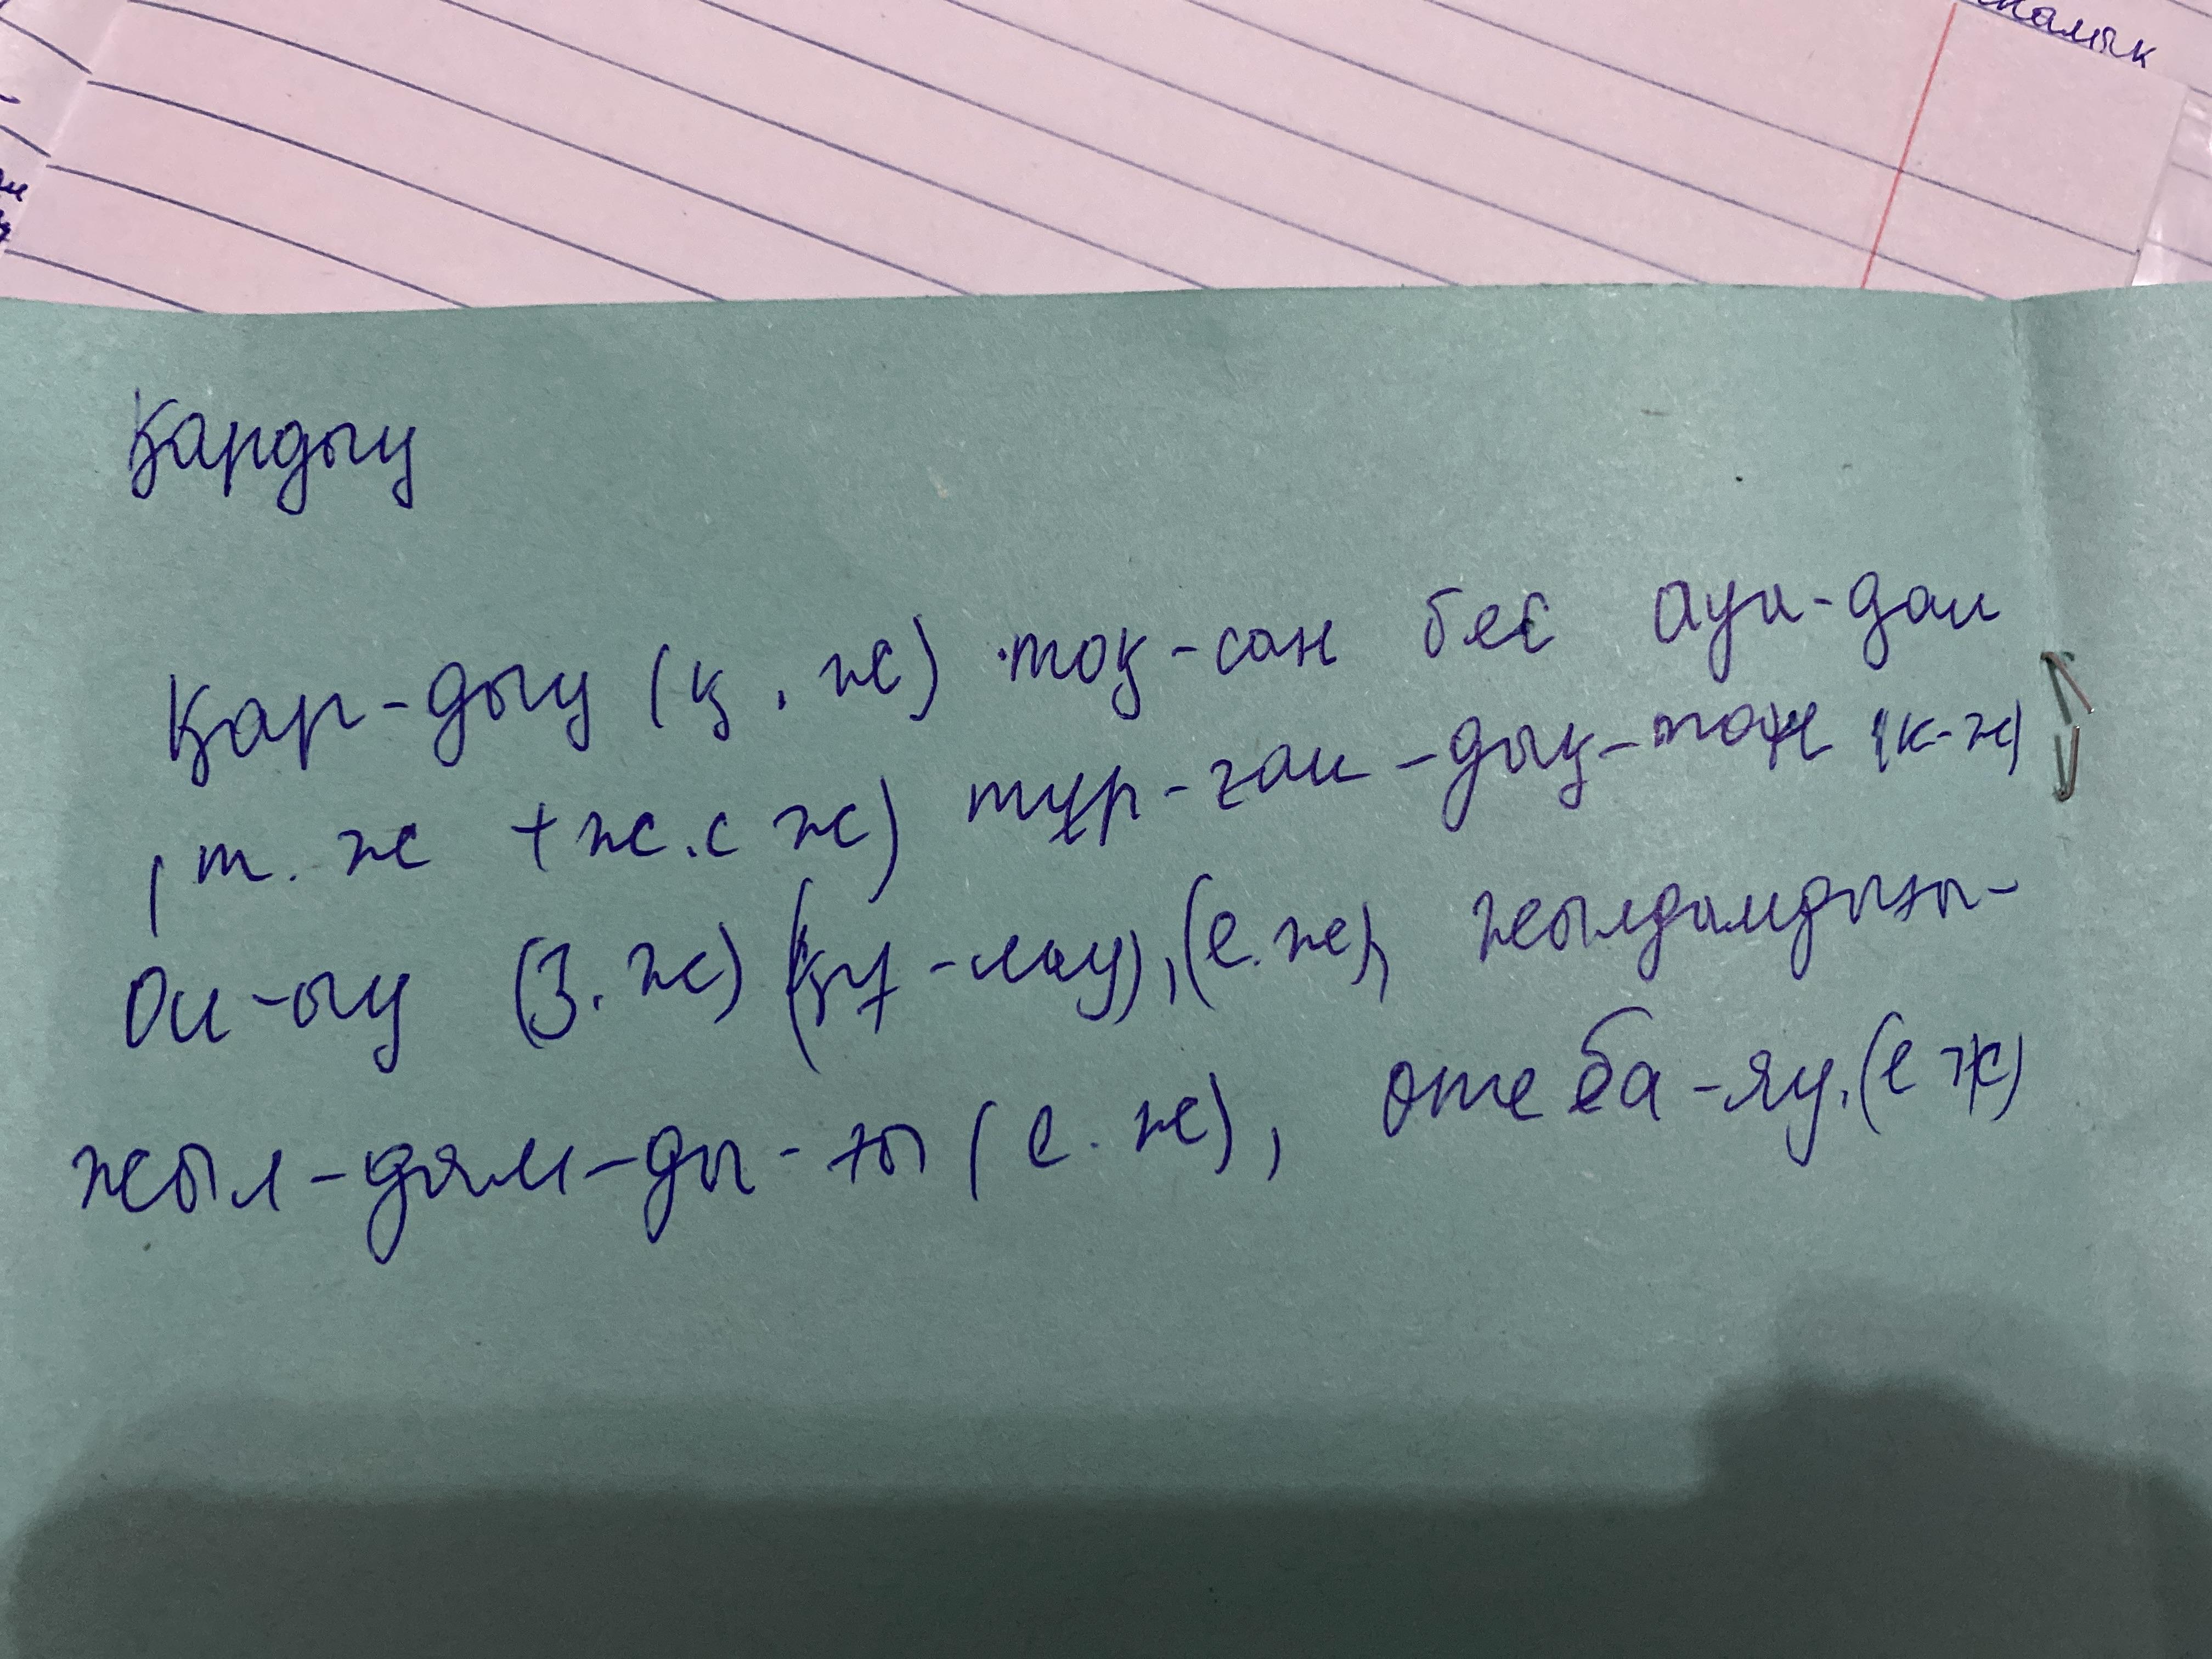 малык
Қардың
Қар-дың (қ. ж) тоқ-сан бес ауа-дан
(т. ж + ж. с ж) тұр-ған-дық-тан (к-ж)
Он-ың (З. ж) (құ-лау), (е. ж), жылдамдығы-
жыл-дам-ды-ғы (е. ж), өте ба-яу. (е ж)